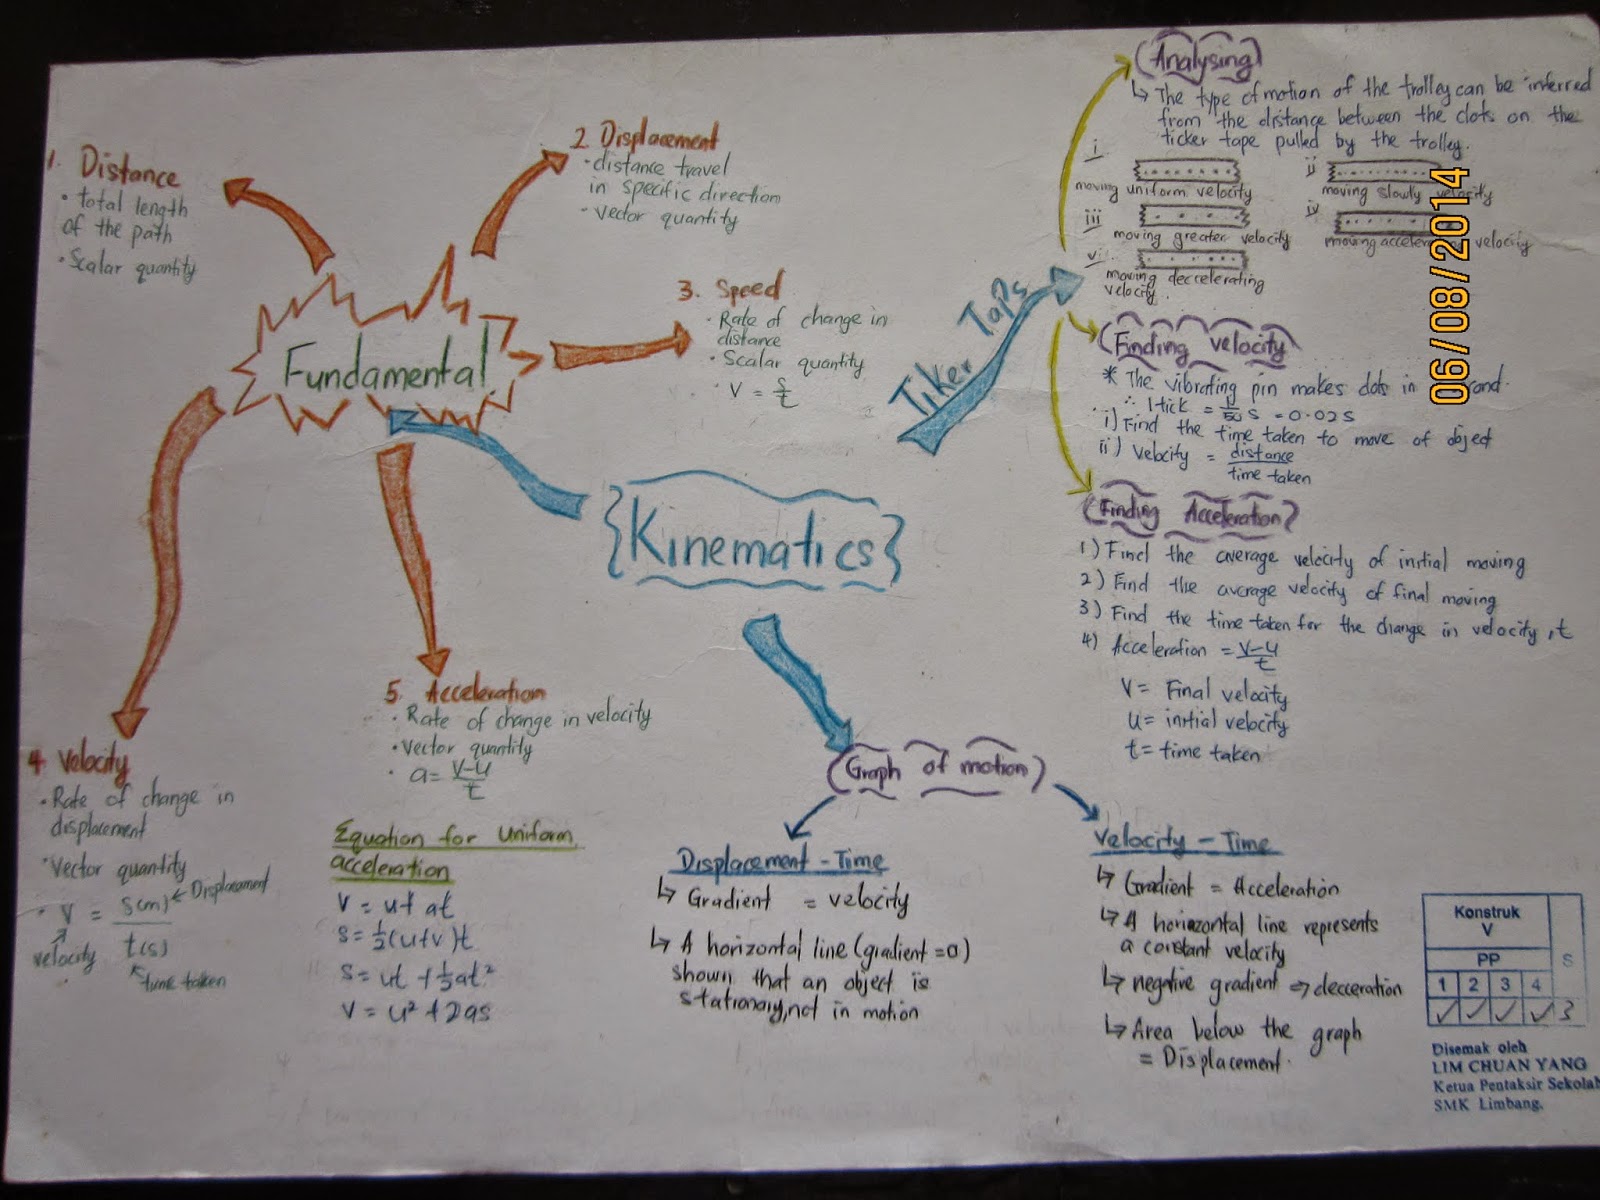 {Kinematics}
Fundamental
1. Distance
• total length
of the path
• Scalar quantity
2. Displacement
• distance travel
in specific direction
• vector quantity
3. Speed
• Rate of change in
distance
• Scalar quantity
• V = s/t
4. Velocity
• Rate of change in
displacement
• Vector quantity
• V = s(m) ← Displacement
t(s)
velocity
time taken
5. Acceleration
• Rate of change in velocity
• vector quantity
• a = v-u/t
Equation for Uniform
acceleration
V = u+at
s = ½(u+v)t
s = ut + ½at²
V = u² + 2as
Tiker Taps
(Analysing)
↳ The type of motion of the trolley can be inferred
from the distance between the dots on the
ticker tape pulled by the trolley.
i
moving uniform velocity
ii
moving slowly velocity
iii
moving greater velocity
iv
moving velocity
v
moving deccelerating
velocity.
(Finding velocity)
* The vibrating pin makes dots in
∴ 1 tick = 1/50 s = 0.02s
i) Find the time taken to move of object
ii) Velocity = distance
time taken
(Finding Acceleration)
1) Find the average velocity of initial moving
2) Find the average velocity of final moving
3) Find the time taken for the change in velocity, t
4) Acceleration = v-u/t
V = Final velocity
u = initial velocity
t = time taken
(Graph of motion)
Displacement - Time
↳ Gradient = velocity
↳ A horizontal line (gradient = 0)
shown that an object is
stationary, not in motion
Velocity - Time
↳ Gradient = Acceleration
↳ A horizontal line represents
a constant velocity
↳ negative gradient ⇒ decceration
↳ Area below the graph
= Displacement.
Konstruk
V
PP
1 2 3 4
S
3
Disemak oleh
LIM CHUAN YANG
Ketua Pentaksir Sekolah
SMK Limbang.
06/08/2014